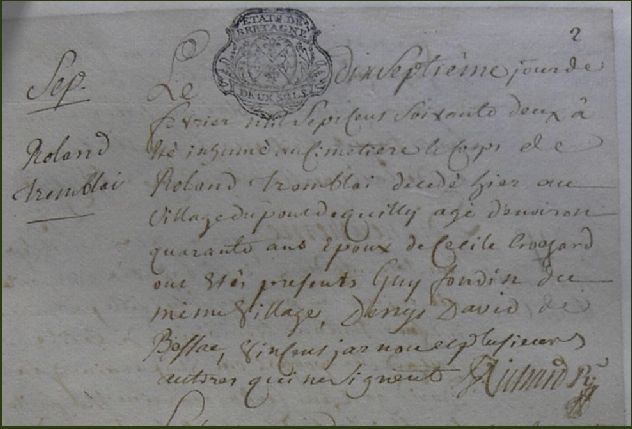 2
ETATS DE
BRETAGNE
DEUX SOLS
Sep.
Roland
Tremblai
Le dix Septième jour de
fevrier mil Sept Cens Soixante deux à
été inhumé au Cimetiere le Corps de
Roland Tremblai decedé hier au
village du pont de quilly agé d'environ
quarante ans Epoux de Cecile
ont étés presents Guy du
même Village, Denys David de
Bessac, Vincens et plusieurs
autres qui ne signent Richard